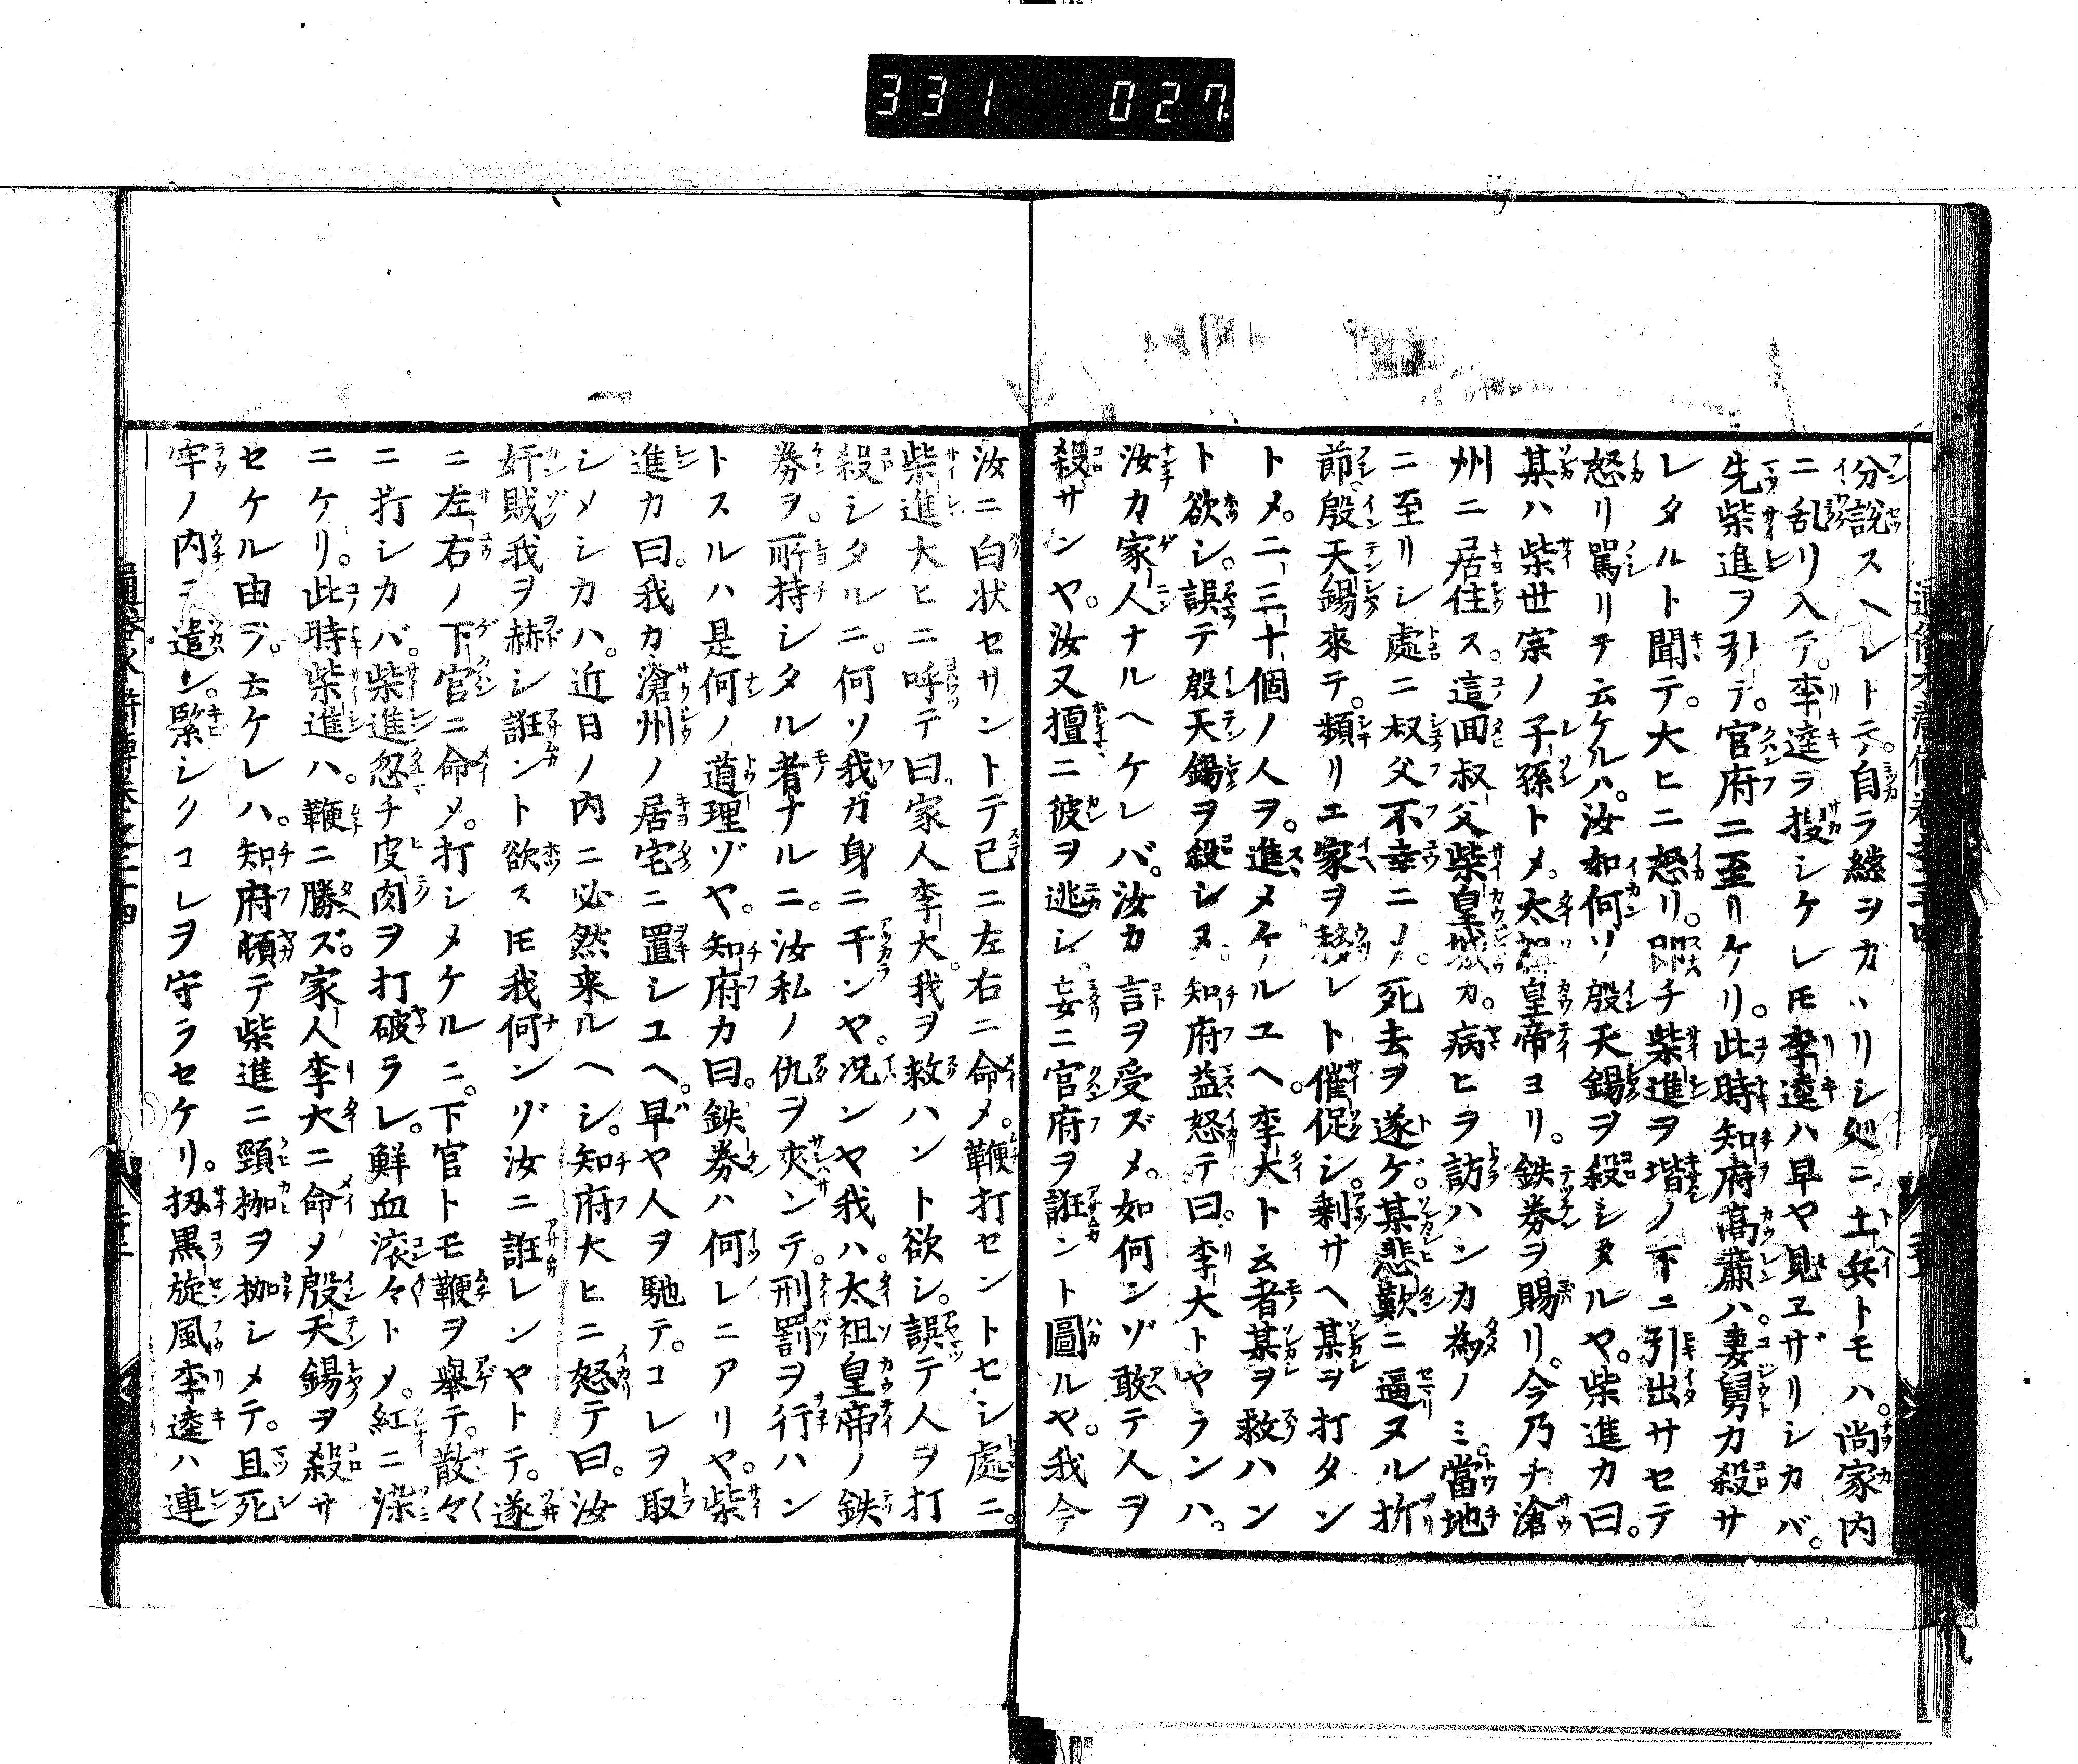 331 027
分説スヘレトテ。自ラ縫ヲカヽリシ処ニ土兵トモハ。尚家内
ニ乱リ入テ。李逵ラ捜シケレㇳモ李逵ハ早ヤ見ヱザリシカバ。
先柴進ヲ引テ。官府ニ至リケリ。此時知府高廉ハ。妻舅カ殺サ
レタルト聞テ。大ヒニ怒リ。即チ柴進ヲ堦ノ下ニ引出サセテ
怒リ罵リテ云ケルハ。汝如何ソ殷天錫ヲ殺シタルヤ。柴進カ曰。
某ハ柴世宗ノ子孫トメ。太祖皇帝ヨリ。鉄券ヲ賜リ。今乃チ滄
州ニ居住ス。這回叔父柴皇城カ。病ヒヲ訪ハンカ為ノミ。當地
ニ至リシ處ニ叔父不幸ニノ。死去ヲ遂ゲ。某悲歎ニ逼ヌル折
節。殷天錫來テ。頻リニ家ヲ移レト催促シ。剰サヘ某ヲ打タン
トメ。二三十個ノ人ヲ。進メケルユヘ。李大ト云者某ヲ救ハン
ト欲シ。誤テ殷天錫ヲ殺シヌ。知府益怒テ曰。李大トヤランハ。
汝カ家人ナルヘケレバ。汝カ言ヲ受ズメ。如何ンゾ敢テ人ヲ
殺サンヤ。汝又擅ニ彼ヲ逃シ。妄ニ官府ヲ誑ント圖ルヤ。我今
汝ニ白状セサントテ已ニ左右ニ命メ。鞭打セントセシ處ニ。
柴進大ヒニ呼テ曰。家人李大。我ヲ救ハント欲シ。誤テ人ヲ打
殺シタルニ。何ソ我ガ身ニ干ンヤ。况ンヤ我ハ。太祖皇帝ノ鉄
券ヲ。所持シタル者ナルニ。汝私ノ仇ヲ夾ンテ。刑罰ヲ行ハン
トスルハ是何ノ道理ゾヤ。知府カ曰。鉄券ハ何レニアリヤ。柴
進カ曰。我カ滄州ノ居宅ニ置シユヘ。早ヤ人ヲ馳テ。コレヲ取
シメシカハ。近日ノ内ニ必然来ルヘシ。知府大ヒニ怒テ曰。汝
奸賊我ヲ赫シ誑ント欲スㇳモ我何ンゾ汝ニ誑レンヤトテ。遂
ニ左右ノ下官ニ命メ。打シメケルニ。下官トモ鞭ヲ擧テ。散々
ニ打シカバ。柴進忽チ皮肉ヲ打破ラレ。鮮血滚々トメ。紅ニ染
ニケリ。此時柴進ハ。鞭ニ勝ズ。家人李大ニ命メ殷天錫ヲ殺サ
セケル由ヲ。云ケレハ。知府頓テ柴進ニ頸枷ヲ枷シメテ。且死
牢ノ内ニ遣シ。緊シクコレヲ守ラセケリ。扨黒旋風李逵ハ連